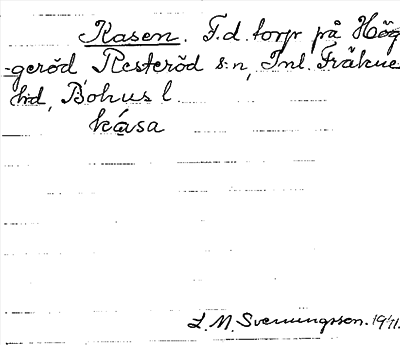 Kasen. F.d. torp på Hög
-geröd Resteröd s:n, Inl. Fräkne
hd, Bohus l
kása
L. M. Svenungsson. 1941.